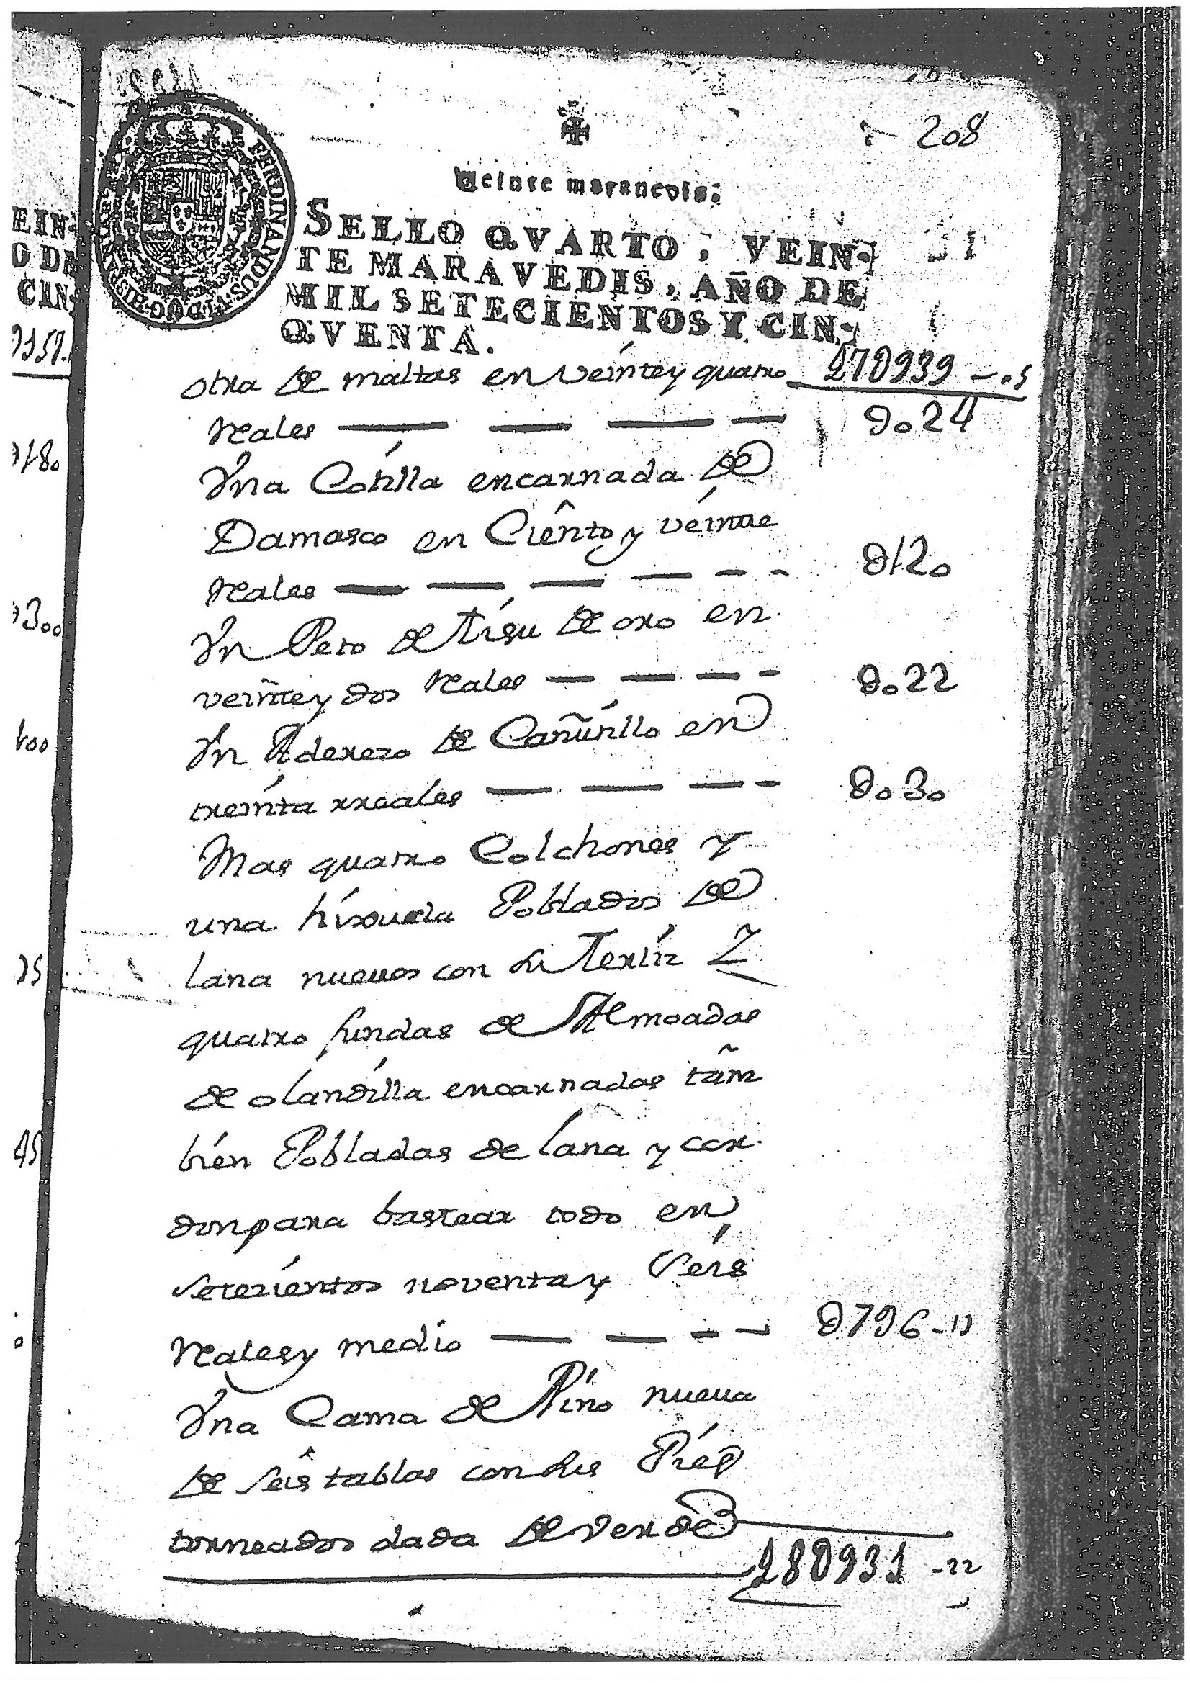 208
Veinte maravedis.
SELLO QVARTO, VEIN-
TE MARAVEDIS, AÑO DE
MIL SETECIENTOS Y CIN-
QVENTA.
otra de maltas en veinte y quatro 27U939-..5
Reales U.024
Vna Cotilla encarnada de
Damasco en Ciento y veinte
Reales U120
Vn Peto de tisu de oro en
veinte y dos Reales U.22
Vn Aderezo de Cañutillo en
treinta rreales U.30
Mas quatro Colchones y
una hisouela Poblados de
lana nuevos con su Terliz Y
quatro fundas de Almoadas
de olandilla encarnadas tam
bien Pobladas de lana y cor
don para bastear todo en
setezientos noventa y Seis
Reales y medio U796-17
Vna Cama de Pino nueva
de seis tablas con sus Pies
torneados dada de verde
28U931-22
FERDINANDUS VI D G HISPANIAR
EIN-
O DE
CIN-
U159
U180
U300
400
U5
45